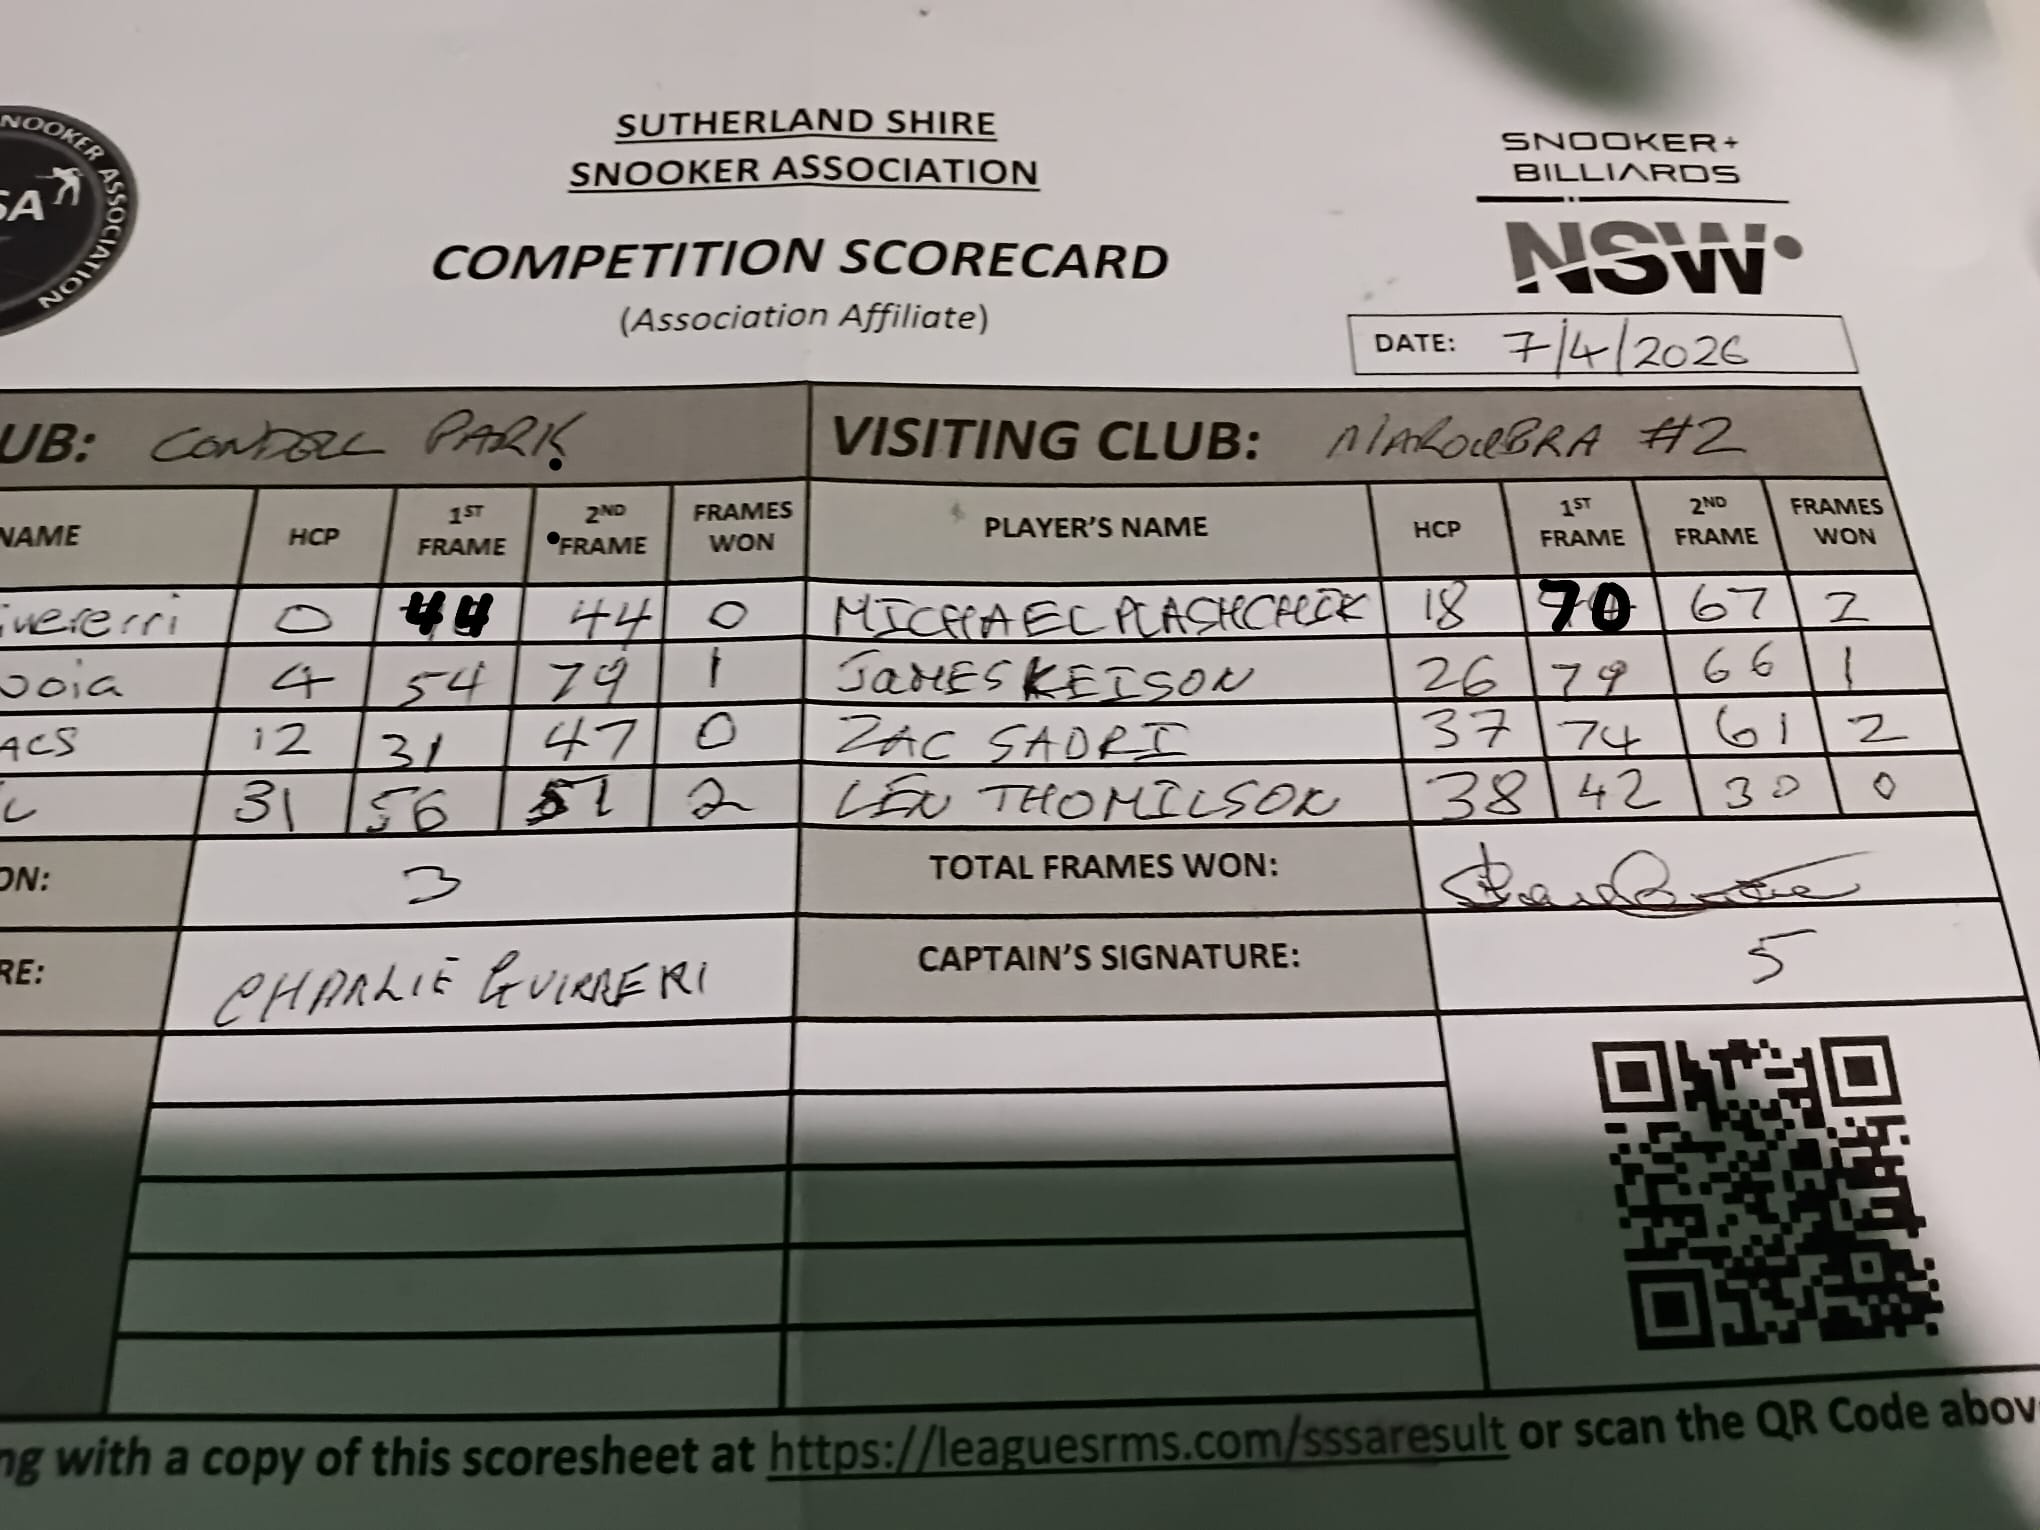 SNOOKER ASSOCIATION
SA
ASSOCIATION
SUTHERLAND SHIRE
SNOOKER ASSOCIATION
COMPETITION SCORECARD
(Association Affiliate)
SNOOKER+
BILLIARDS
NSW
DATE: 7/4/2026
UB: CONDELL PARK VISITING CLUB: MAROUBRA #2
NAME HCP 1ST FRAME 2ND FRAME FRAMES WON PLAYER'S NAME HCP 1ST FRAME 2ND FRAME FRAMES WON
0 44 44 0 MICHAEL PLASHCHIK 18 70 67 2
oia 4 54 79 1 JAMES KEISON 26 79 66 1
ACS 12 31 47 0 ZAC SADRI 37 74 61 2
31 56 51 2 LEN THOMILSON 38 42 30 0
ON: 3 TOTAL FRAMES WON:
RE: CHARLIE GUIRRERI CAPTAIN'S SIGNATURE: 5
ng with a copy of this scoresheet at https://leaguesrms.com/sssaresult or scan the QR Code abov